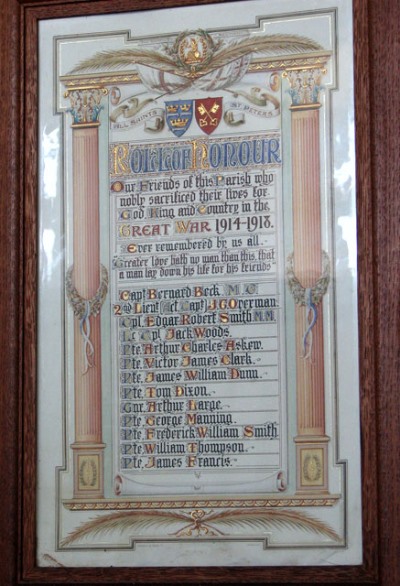 ALL SAINTS
ST PETERS
ROLL OF HONOUR
Our Friends of this Parish who
nobly sacrificed their lives for
God King and Country in the
GREAT WAR 1914-1918.
Ever remembered by us all.
Greater love hath no man than this, that
a man lay down his life for his friends
Capt Bernard Beck M.C
2nd Lieut (Act. Capt) J.G. Overman.
Cpl. Edgar Robert Smith M.M.
Lc Cpl Jack Woods.
Pte. Arthur Charles Askew.
Pte. Victor James Clark.
Pte. James William Dunn.
Pte. Tom Dixon.
Gnr. Arthur Large.
Pte. George Manning.
Pte. Frederick William Smith
Pte. William Thompson.
Pte. James Francis.